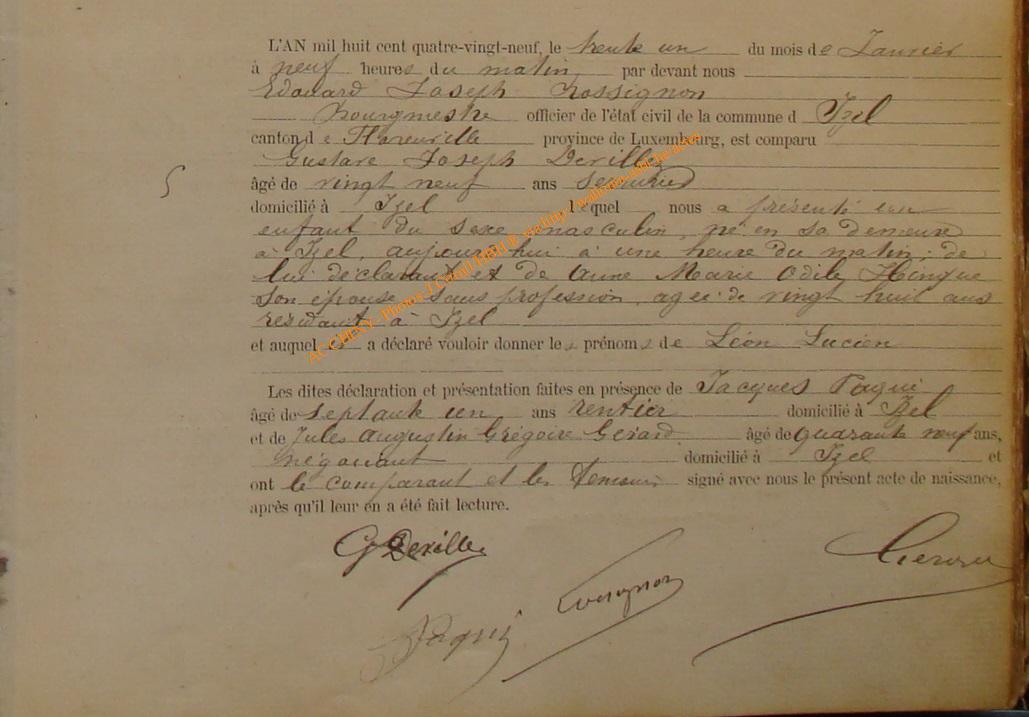 L'AN mil huit cent quatre-vingt-neuf, le trente un du mois de Janvier
à neuf heures du matin par devant nous
Edouard Joseph Rossignon
Bourgmestre officier de l'état civil de la commune d Izel
canton de Florenville province de Luxembourg, est comparu
Gustave Joseph Deville
âgé de vingt neuf ans
domicilié à Izel lequel nous a présenté un
enfant du sexe masculin, né en sa demeure
à Izel, aujourd'hui à une heure du matin, de
lui déclarant et de Anne Marie Odile
son épouse, sans profession, agée de vingt huit ans
résidant à Izel
et auquel il a déclaré vouloir donner les prénoms de Léon Lucien
Les dites déclaration et présentation faites en présence de Jacques Paqui
âgé de septante un ans rentier domicilié à Izel
et de Jules Augustin Grégoire Gerard âgé de quarante neuf ans,
négociant domicilié à Izel et
ont le comparant et les témoins signé avec nous le présent acte de naissance,
après qu'il leur en a été fait lecture.
5
G Deville
Gerard
Rossignon
Paqui
AC CHINY - Photos J.Count